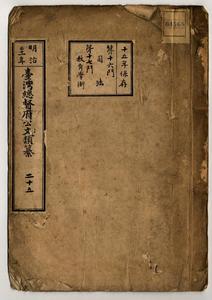 十五年保存
第十六門
司法
第十七門
教育學術
明治
三十三年
臺灣總督府公文類纂
二十五